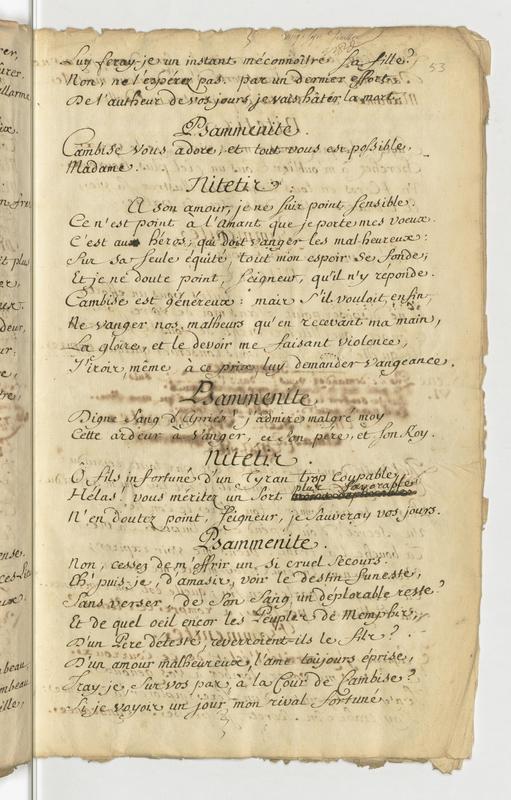 53
Luy feray-je un instant méconnoître sa fille?
Non, ne l'espérez pas. par un dernier effort,
De l'autheur de vos jours je vais hâter la mort.
Psammenite.
Cambise vous adore, et tout vous est possible,
Madame.
Nitetis.
A son amour, je ne suis point sensible.
Ce n'est point à l'amant que je porte mes voeux.
C'est au héros, qui doit vanger les malheureux:
Sur sa seule équité, tout mon espoir se fonde;
Et je ne doute point, Seigneur, qu'il n'y réponde.
Cambise est généreux: mais s'il vouloit, enfin,
Ne vanger nos malheurs qu'en recevant ma main,
La gloire, et le devoir me faisant violence,
J'irois, même à ce prix, luy demander vangeance.
Psammenite.
Digne Sang d'Apriés! j'admire malgré moy
Cette ardeur à vanger, et son pére, et son Roy.
Nitetis.
Ô fils infortuné d'un Tyran trop coupable,
Hélas! vous méritez un Sort plus favorable
N'en doutez point, Seigneur, je sauveray vos jours.
Psammenite.
Non, cessez de m'offrir un si cruel Secours.
Eh! puis-je, d'Amasis, voir le destin funeste,
Sans verser, de son Sang, un déplorable reste?
Et de quel oeil encor les Peuples de Memphis,
D'un Pére détesté reverroient-ils le fils?
D'un amour malheureux, l'ame toujours éprise,
Iray-je, sur vos pas, à la Cour de Cambise?
Si je voyois un jour mon rival fortuné